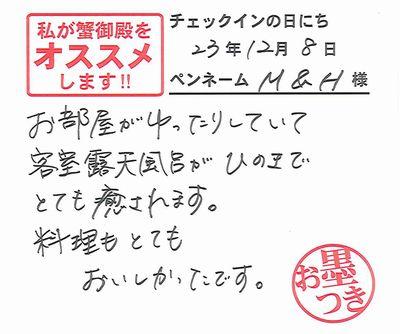 私が蟹御殿を
オススメ
します!!
チェックインの日にち
23年12月8日
ペンネーム M&H 様
お部屋がゆったりしていて
客室露天風呂がひのきで
とても癒されます。
料理もとても
おいしかったです。
お墨つき